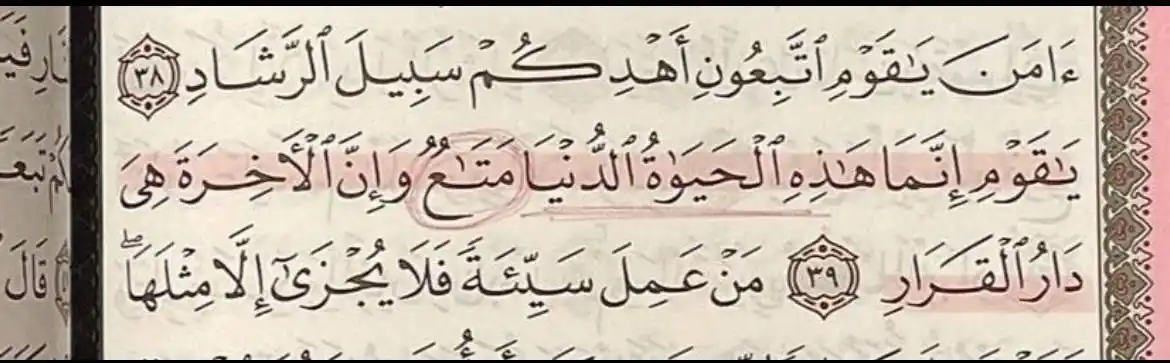 ءَامَنَ يَٰقَوْمِ ٱتَّبِعُونِ أَهْدِكُمْ سَبِيلَ ٱلرَّشَادِ ٣٨
يَٰقَوْمِ إِنَّمَا هَٰذِهِ ٱلْحَيَوٰةُ ٱلدُّنْيَا مَتَٰعٌ وَإِنَّ ٱلْأَخِرَةَ هِىَ
دَارُ ٱلْقَرَارِ ٣٩ مَنْ عَمِلَ سَيِّئَةً فَلَا يُجْزَىٰٓ إِلَّا مِثْلَهَا ۖ
قَالَ